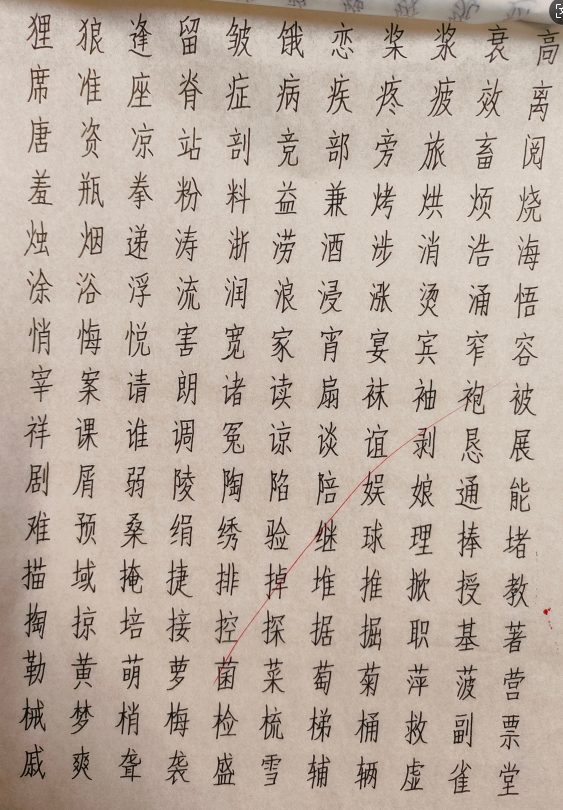 狸狼逢留皱饿恋桨浆衰高
席准座脊症病疾疼疲效离
唐资凉站剖竞部旁旅畜阅
羞瓶拳粉料益兼烤烘烦烧
烛烟递涛浙涝酒涉消浩海
涂浴浮流润浪浸涨烫涌悟
悄悔悦害宽家宵宴宾窄容
宰案请朗诸读扇袜袖袍被
祥课谁调冤谅谈谊剥恳展
剧屑弱陵陶陷陪娱娘通能
难预桑绢绣验继球理捧堵
描域掩捷排掉堆推掀授教
掏掠培接控探据掘职基著
勒黄萌萝菌菜萄菊萍菠营
械梦梢梅检梳梯桶救副票
戚爽聋袭盛雪辅辆虚雀堂